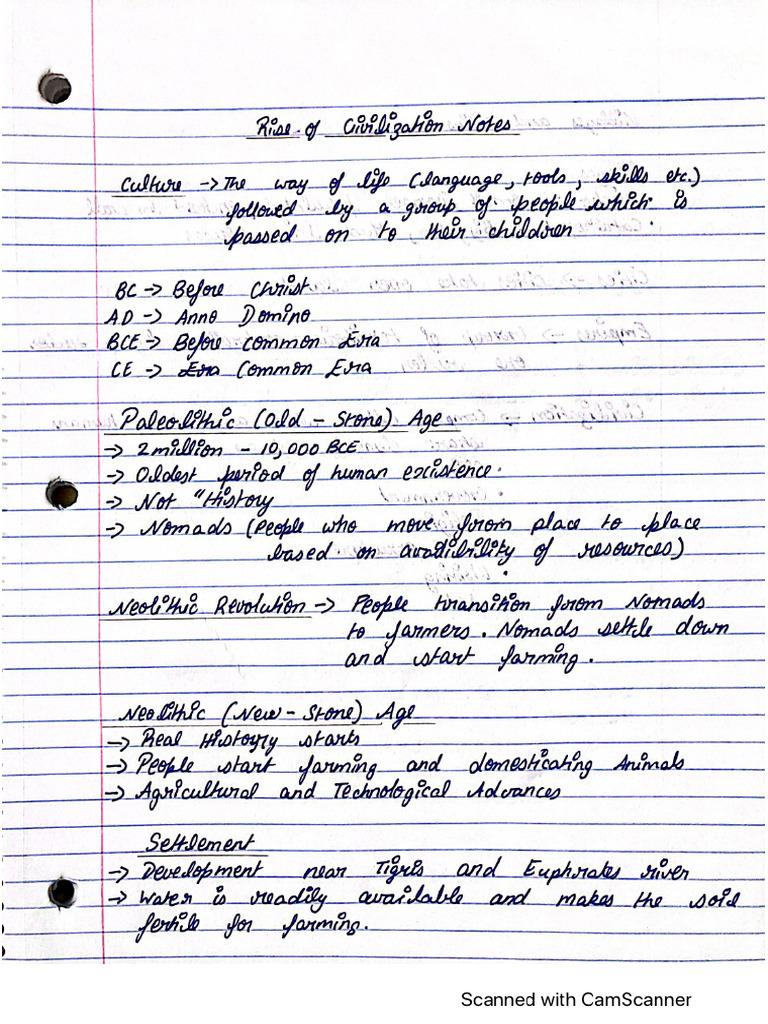 Rise of Civilization Notes
Culture -> The way of life (language, tools, skills etc.)
followed by a group of people which is
passed on to their children
BC -> Before Christ
AD -> Anno Domino
BCE -> Before Common Era
CE -> Era Common Era
Paleolithic (Old - Stone) Age
-> 2 million - 10,000 BCE
-> Oldest period of human existence.
-> Not "History
-> Nomads (People who move from place to place
based on availibility of resources)
Neolithic Revolution -> People transition from Nomads
to farmers. Nomads settle down
and start farming.
Neolithic (New - Stone) Age
-> Real History starts
-> People start farming and domesticating Animals
-> Agricultural and Technological Advances
Settlement
-> Development near Tigris and Euphrates river
-> Water is readily available and makes the soil
fertile for farming.
Scanned with CamScanner